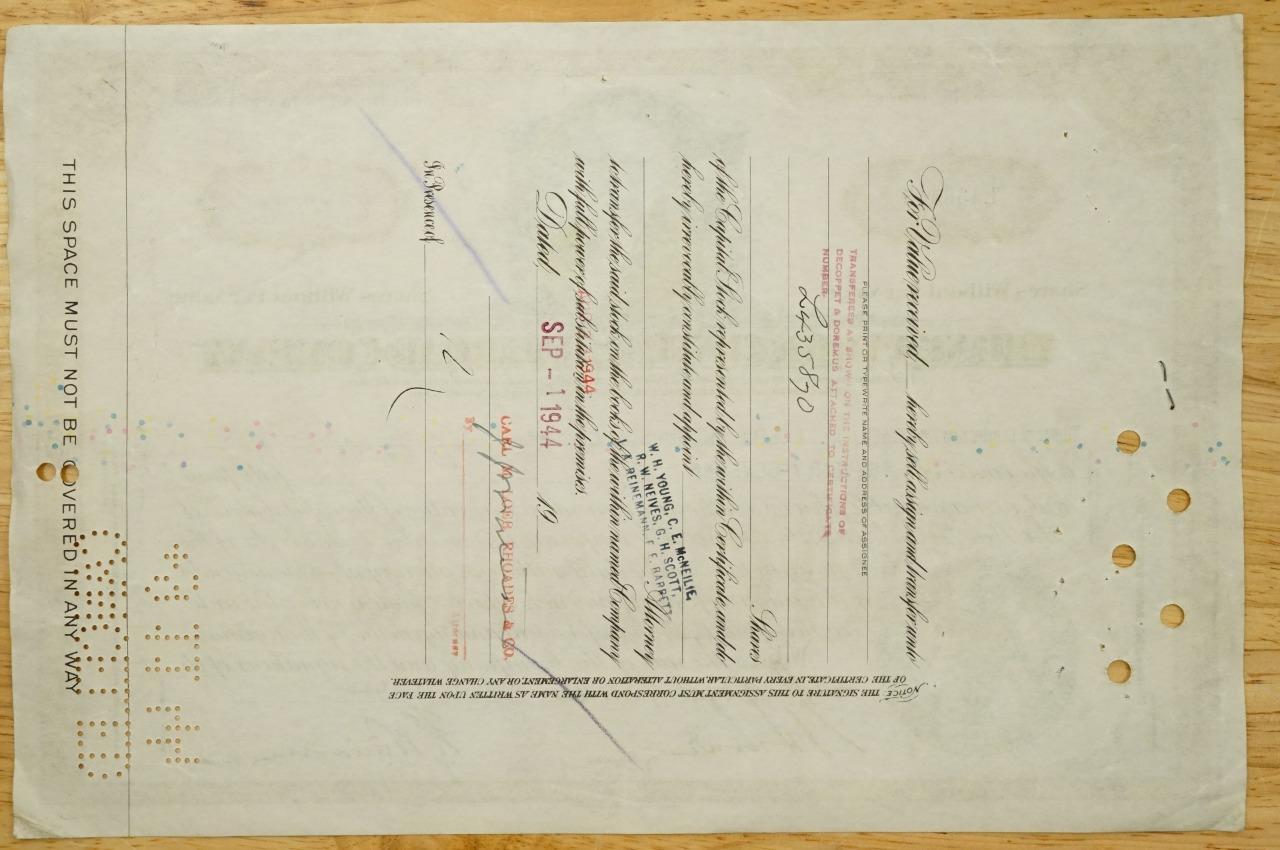 For Value received hereby sell, assign and transfer unto
PLEASE PRINT OR TYPEWRITE NAME AND ADDRESS OF ASSIGNEE
TRANSFERRED AS SHOWN ON THE INSTRUCTIONS OF
DECOPPET & DOREMUS ATTACHED TO CERTIFICATE
NUMBER
L435890
Shares
of the Capital Stock represented by the within Certificate, and do
hereby irrevocably constitute and appoint
W. H. YOUNG, C. E. McNEILIE,
R. W. NEIVES, G. H. SCOTT,
REINEMANN, F. F. BARRETT
Attorney
to transfer the said stock on the books of the within named Company
with full power of substitution in the premises.
1944
Dated, 19
SEP -- 1 1944
CARL M. LOEB, RHOADES & CO.
BY
In Presence of
NOTICE: THE SIGNATURE TO THIS ASSIGNMENT MUST CORRESPOND WITH THE NAME AS WRITTEN UPON THE FACE
OF THE CERTIFICATE, IN EVERY PARTICULAR, WITHOUT ALTERATION OR ENLARGEMENT, OR ANY CHANGE WHATEVER.
THIS SPACE MUST NOT BE COVERED IN ANY WAY